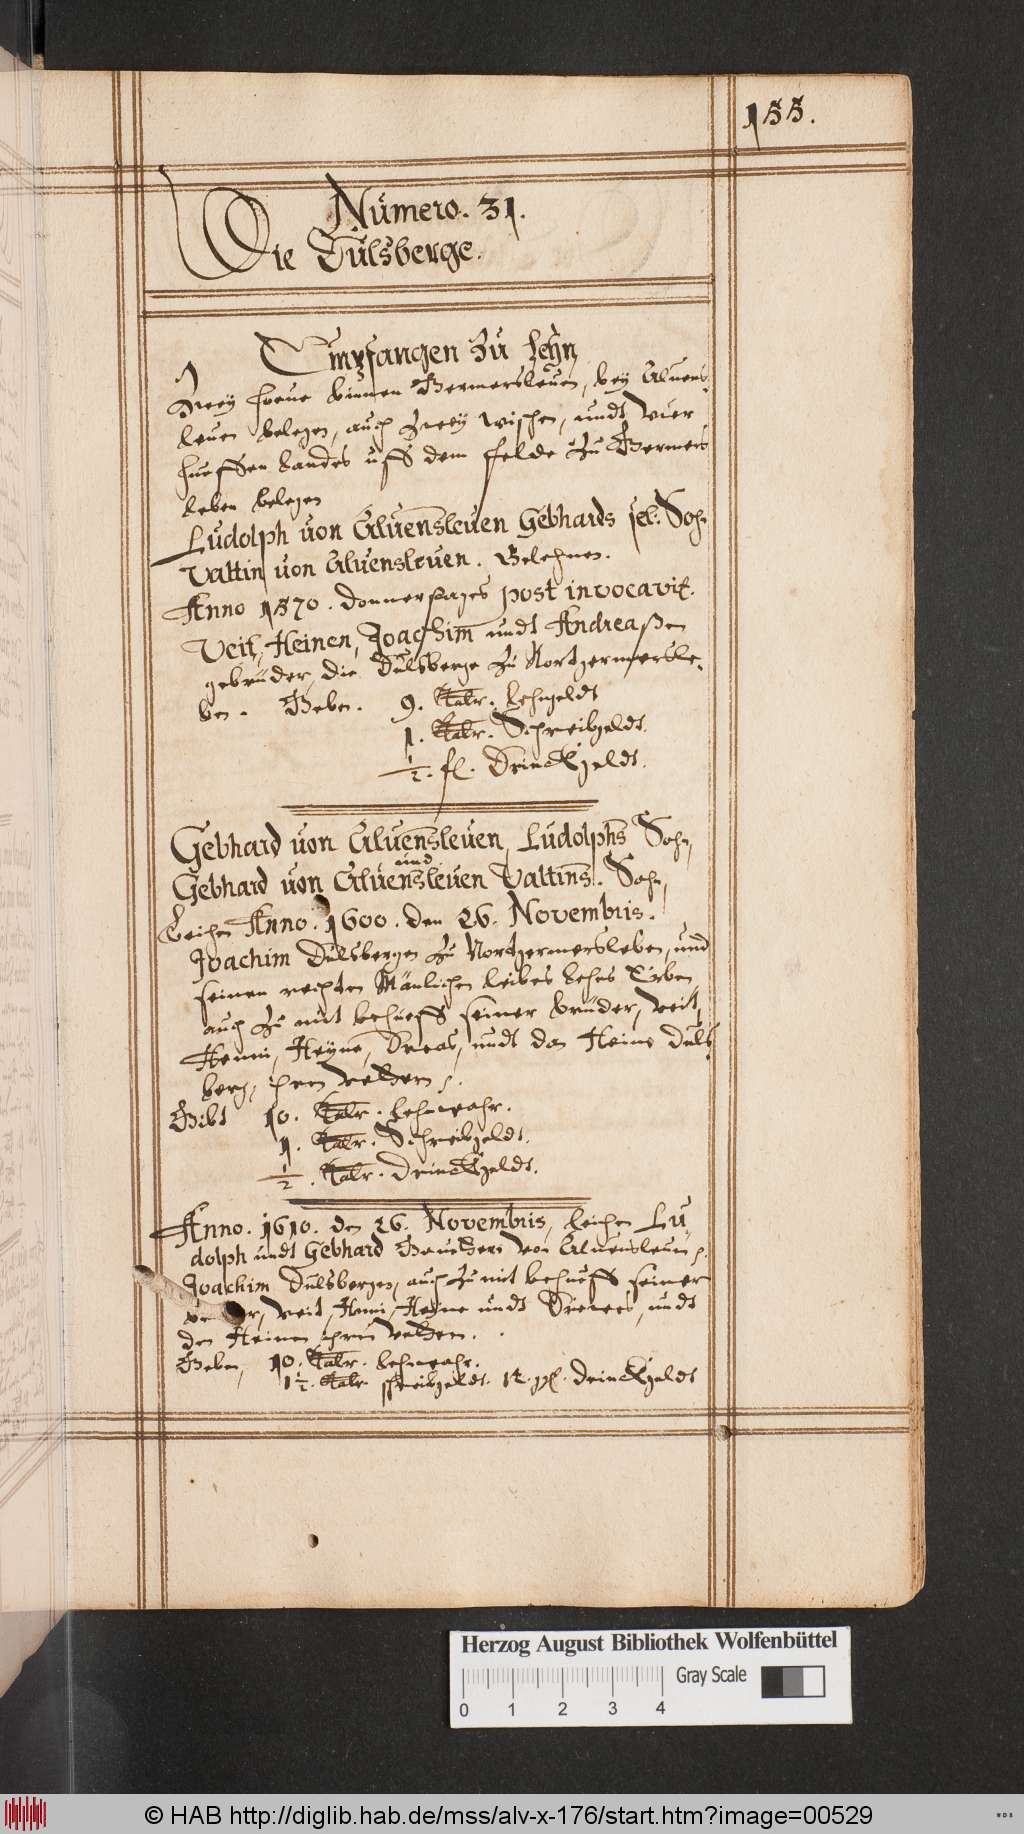 155.
Numero. 31.
Die Dülsberge.
Empfangen zu Lehn
Zweÿ Hoeue binnen Germersleuen, beÿ Aluens-
leuen belegen, auch zweÿ wischen, undt vier
hueffen Landes uff dem felde zu Germers
leben belegen
Ludolph von Aluensleuen Gebhards sel. Sohn
Valtin von Aluensleuen. Belehnen.
Anno 1570. Donnerstages post invocavit.
Veit, Heinen, Joachim undt Andreaßen
gebrüder, die Dülsberge zu Nortgermersle-
ben. Geben. 9. Talr. Lehngeldt
1. Talr. Schreibgeldt.
1/2. fl. Drinckgeldt.
Gebhard von Aluensleuen, Ludolphs Sohn,
und
Gebhard von Aluensleuen Valtins. Sohn,
Leihen Anno. 1600. den 26. Novembris.
Joachim Dülsbergen zu Nortgermersleben, und
seinen rechten Mänlichen leibes Lehns Erben,
auch zu mit behueff seiner brüder, Veit,
Henni, Heÿne, Dreas, undt den Heine Düls
berg, ihren Vettern.
Gibt 10. Talr. Lehnwahr.
1. Talr. Schreibgeldt.
1/2. Talr. Drinckgeldt.
Anno. 1610. den 26. Novembris, Leihen Lu
dolph undt Gebhard Gevettern von Aluensleuen
Joachim Dülsbergen, auch zu mit behueff seiner
Veit, Henni, Heÿne undt Drewes, undt
den Heinen ihren Vettern.
Geben, 10. Talr. Lehnwahr.
1 1/2. Talr. schreibgeldt. 12. gl. drinckgeldt
Herzog August Bibliothek Wolfenbüttel
Gray Scale
0 1 2 3 4
© HAB http://diglib.hab.de/mss/alv-x-176/start.htm?image=00529